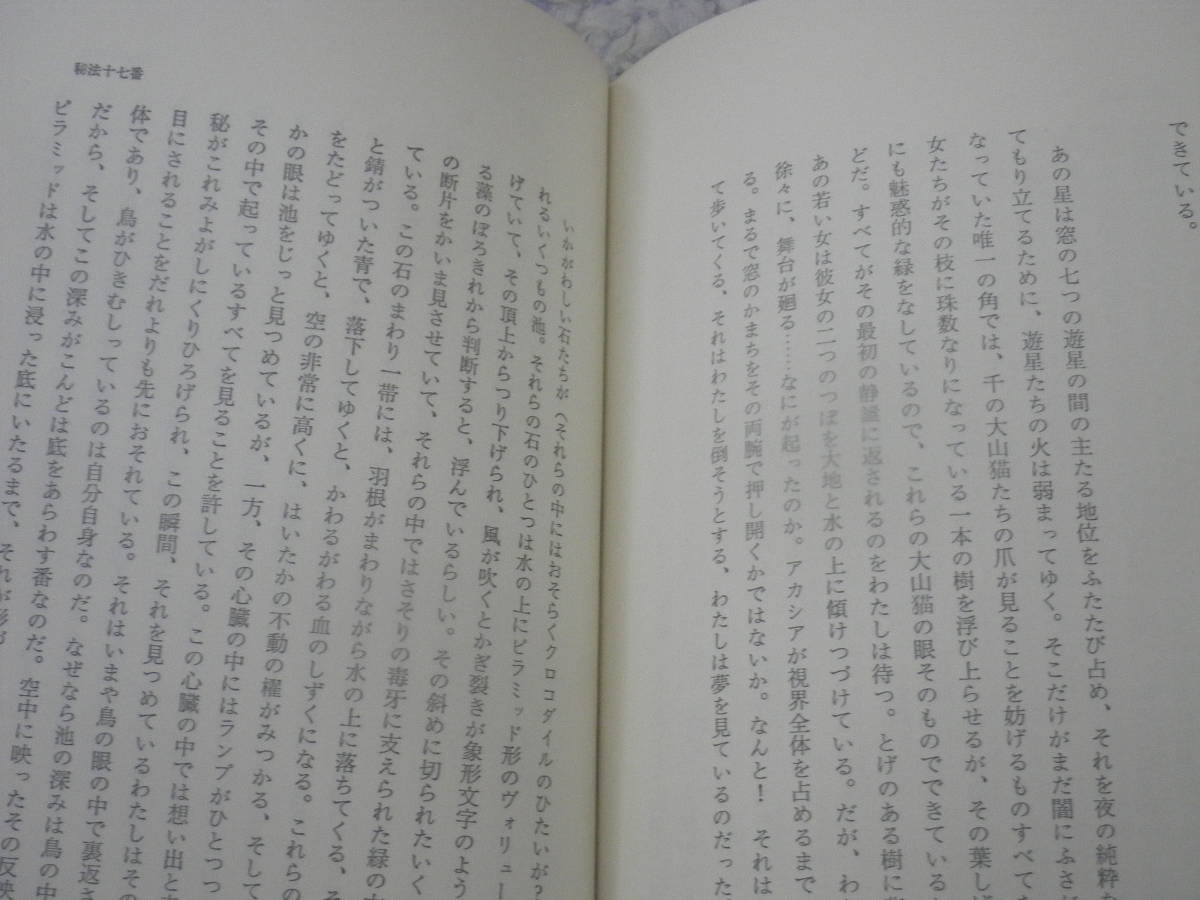 できている。
あの星は窓の七つの遊星の間の主たる地位をふたたび占め、それを夜の純粋な
てもり立てるために、遊星たちの火は弱まってゆく。そこだけがまだ闇にふさが
なっていた唯一の角では、千の大山猫たちの爪が見ることを妨げるものすべてを
女たちがその枝に珠数なりになっている一本の樹を浮び上らせるが、その葉しげ
にも魅惑的な緑をなしているので、これらの大山猫の眼そのものでできている
どだ。すべてがその最初の静謐に返されるのをわたしは待つ。とげのある樹に
あの若い女は彼女の二つのつぼを大地と水の上に傾けつづけている。だが、わ
徐々に、舞台が廻る……なにが起ったのか。アカシアが視界全体を占めるまで
る。まるで窓のかまちをその両腕で押し開くかではないか。なんと！　それは
て歩いてくる、それはわたしを倒そうとする、わたしは夢を見ているのだった
秘法十七番
いかがわしい石たちが（それらの中にはおそらくクロコダイルのひたいが？
れるいくつもの池。それらの石のひとつは水の上にピラミッド形のヴォリュー
げていて、その頂上からつり下げられ、風が吹くとかぎ裂きが象形文字のよう
る藻のぼろきれから判断すると、浮んでいるらしい。その斜めに切られたいく
の断片をかいま見させていて、それらの中ではさそりの毒牙に支えられた緑の
ている。この石のまわり一帯には、羽根がまわりながら水の上に落ちてくる、そ
と錆がついた青で、落下してゆくと、かわるがわる血のしずくになる。これらの
をたどってゆくと、空の非常に高くに、はいたかの不動の櫂がみつかる、そして
かの眼は池をじっと見つめているが、一方、その心臓の中にはランプがひとつつ
その中で起っているすべてを見ることを許している。この心臓の中では想い出と
秘がこれみよがしにくりひろげられ、この瞬間、それを見つめているわたしはその
目にされることをだれよりも先におそれている。それはいまや鳥の眼の中で裏返さ
体であり、鳥がひきむしっているのは自分自身なのだ。なぜなら池の深みは鳥の中
だから、そしてこの深みがこんどは底をあらわす番なのだ。空中に映ったその反映
ピラミッドは水の中に浸った底にいたるまで、それが形が